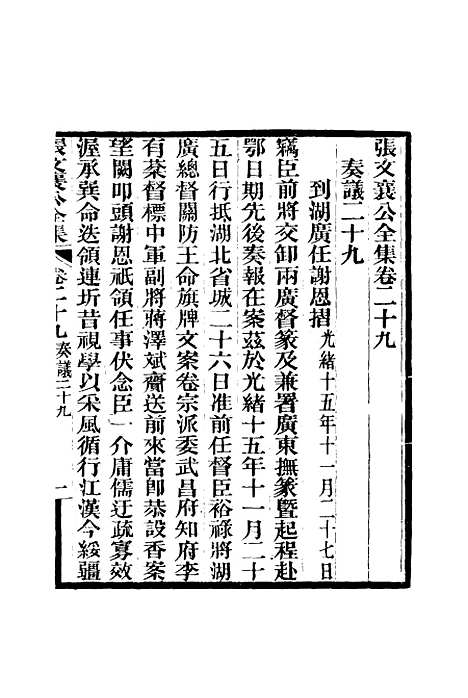 張文襄公全集卷二十九
奏議二十九
到湖廣任謝恩摺光緒十五年十一月二十七日
竊臣前將交卸兩廣督篆及兼署廣東撫篆暨起程赴
鄂日期先後奏報在案茲於光緒十五年十一月二十
五日行抵湖北省城二十六日准前任督臣裕祿將湖
廣總督關防王命旗牌文案卷宗派委武昌府知府李
有棻督標中軍副將蔣澤斌齎送前來當卽恭設香案
望闕叩頭謝恩祇領任事伏念臣一介庸儒迂疏寡效
渥承巽命迭領連圻昔視學以采風循行江漢今綏疆
張文襄公全集 卷二十九奏議二十九 一